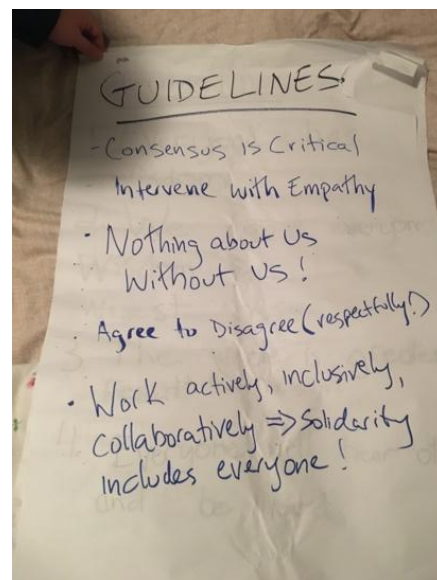 GUIDELINES.
- Consensus is Critical
- Intervene with Empathy
• Nothing about Us
Without us!
• Agree to Disagree (respectfully!)
• Work actively, inclusively,
collaboratively => Solidarity
includes everyone!